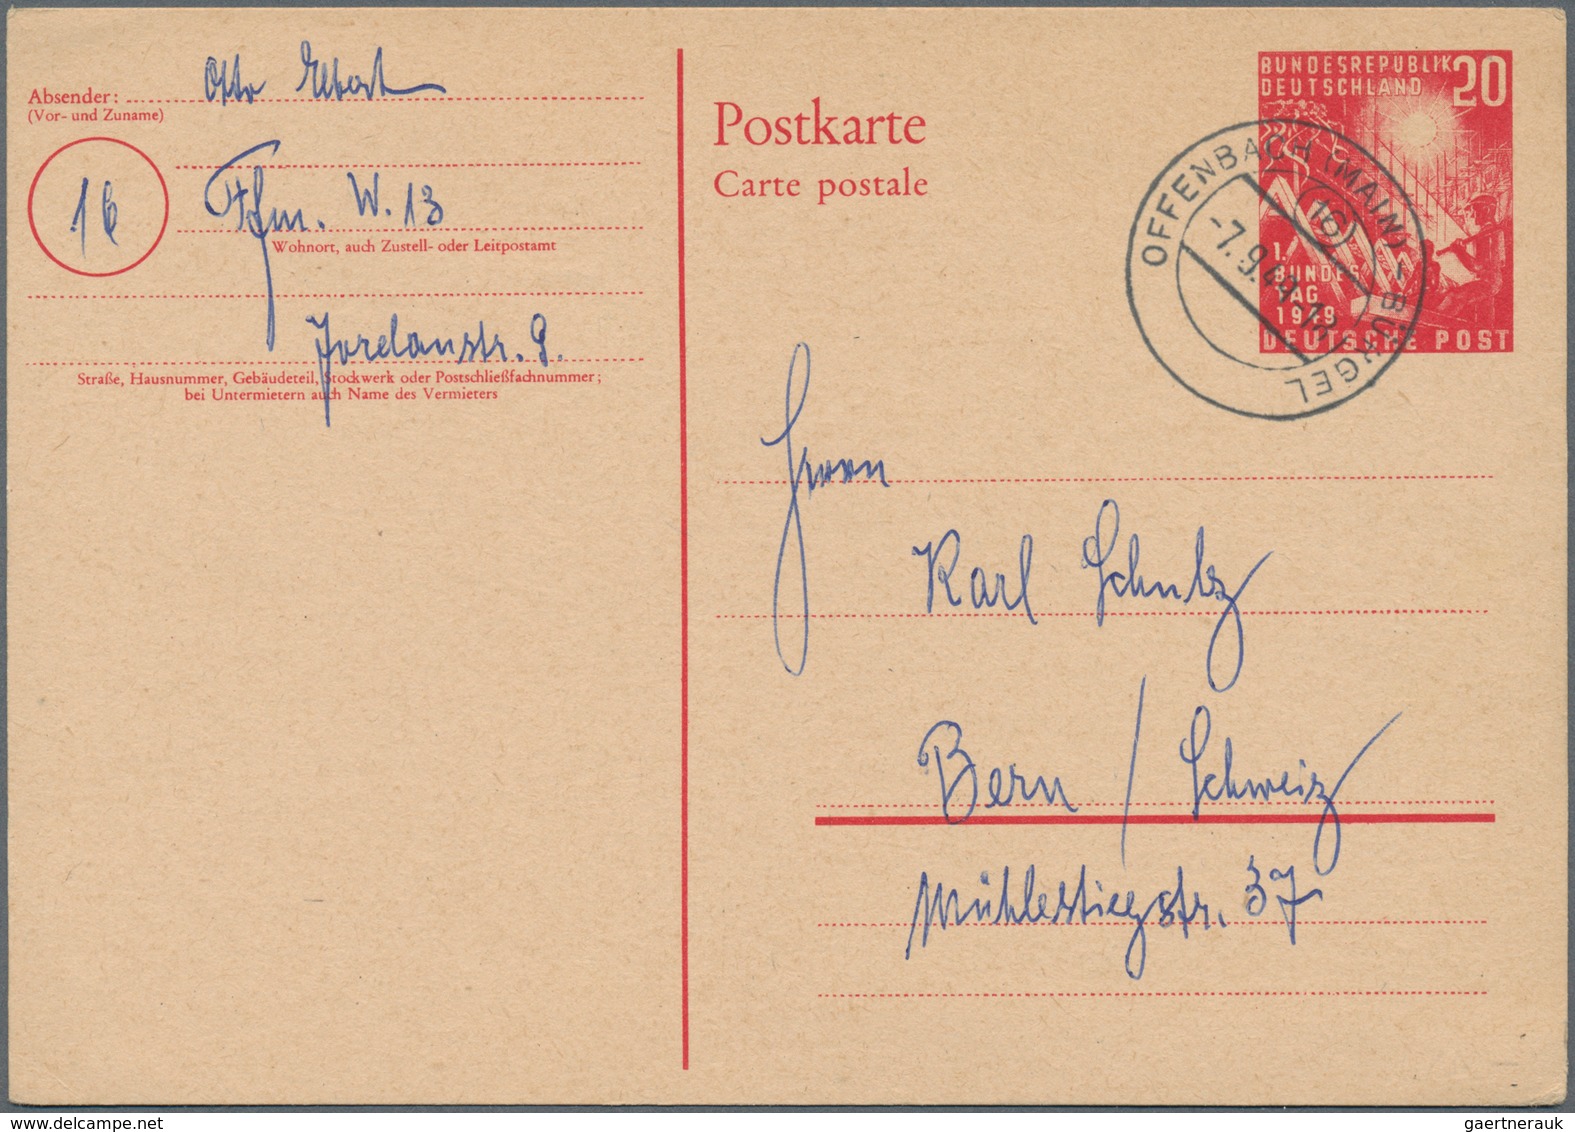 Absender: Otto Ebert
(Vor- und Zuname)
16
Ffm. W. 13
Wohnort, auch Zustell- oder Leitpostamt
Jordanstr. 9.
Straße, Hausnummer, Gebäudeteil, Stockwerk oder Postschließfachnummer;
bei Untermietern auch Name des Vermieters
Postkarte
Carte postale
BUNDESREPUBLIK 20
DEUTSCHLAND
1.
BUNDES
TAG
1949
DEUTSCHE POST
OFFENBACH (MAIN) - BÜRGEL
16
-7.9.49-18
Herrn
Karl Schulz
Bern / Schweiz
Mühlestiegstr. 37
delcampe.net
gaertnerauk